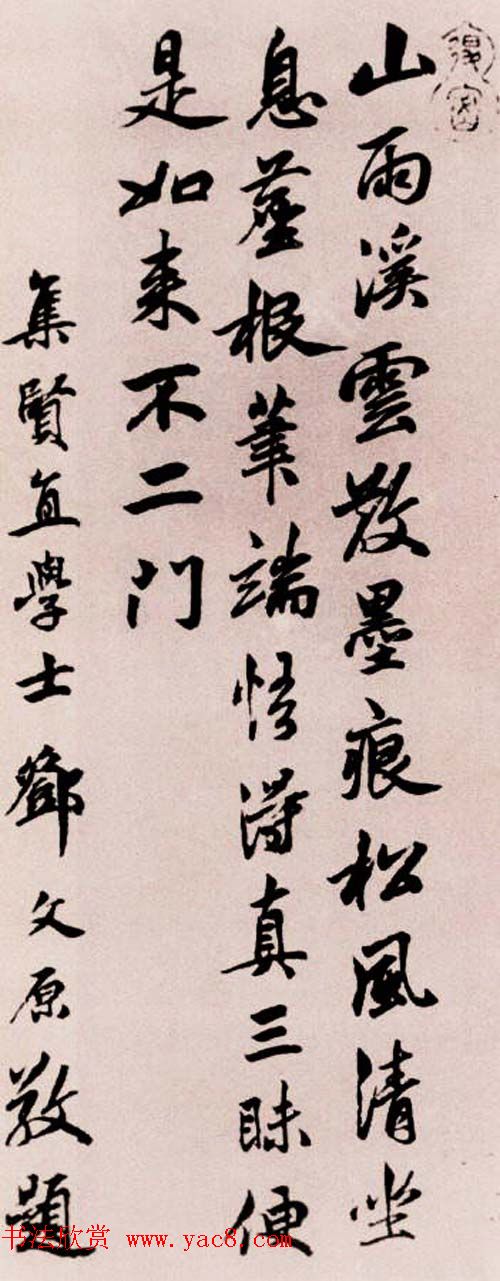 山雨溪雲散墨痕松風清坐
息塵根筆端悟得真三昧便
是如来不二門
集賢直學士鄧文原敬題
书法欣赏 www.yac8.com